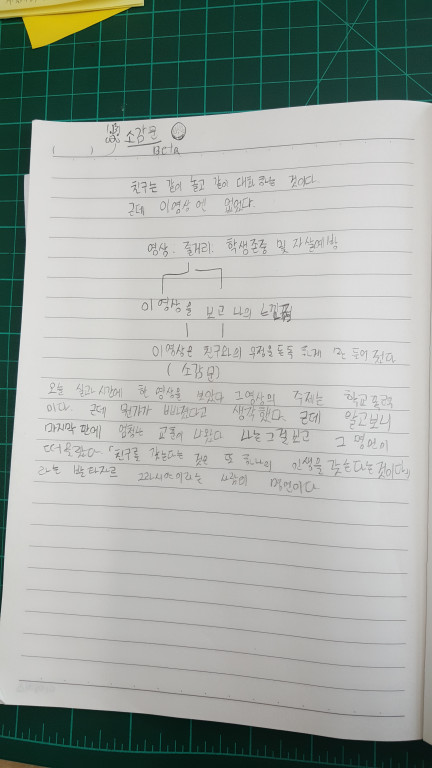 소감문
( )
Beta
친구는 같이 놀고 같이 대화 하는 것이다.
근데 이영상엔 없었다.
영상. 줄거리. 학생존중 및 자살예방
이 영상을 보고 나의 느낌
이영상은 친구와의 우정을 돈독 하게 만 들어 줬다
( 소감문)
오늘 실과시간에 한 영상을 보았다 그영상의 주제는 학교폭력
이다. 근데 뭔가가 빠졌다고 생각했다. 근데 알고보니
마지막 판에 엄청난 교훈이 나왔다 나는 그걸보고 그 명언이
떠올랐다 「친구를 갖는다는 것은 또 하나의 인생을 갖는다는것이다」
라는 발타자르 그라시안이라는 사람의 명언이다